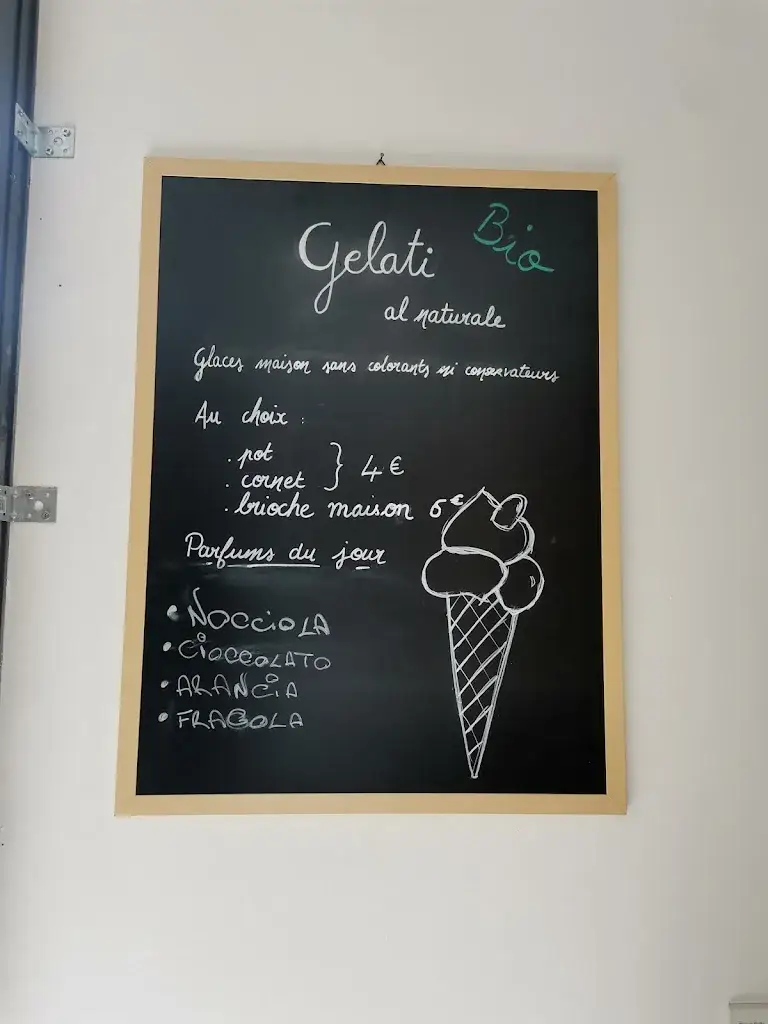 Gelati
Bio
al naturale
Glaces maison sans colorants ni conservateurs
Au choix :
. pot
. cornet } 4 €
. brioche maison 6€
Parfums du jour
• NOCCiOLA
• CiOCCOLATO
• ARANCiA
• FRAGOLA